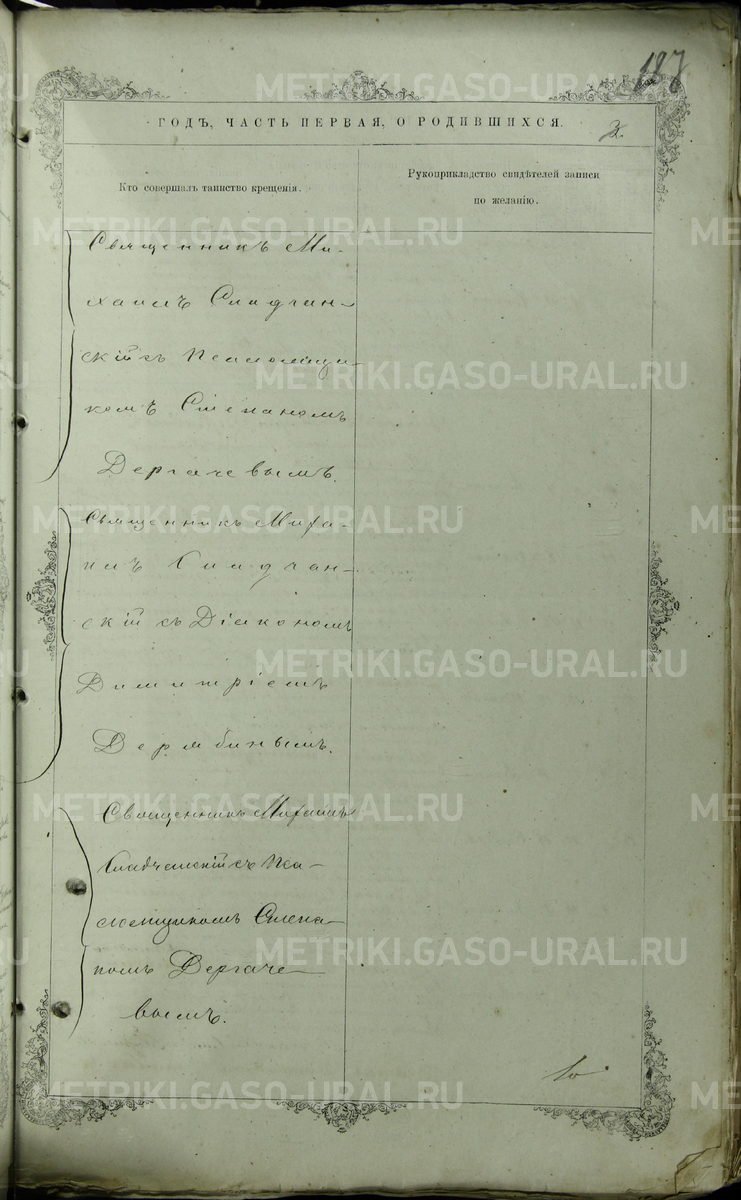 187
ГОДЪ, ЧАСТЬ ПЕРВАЯ, О РОДИВШИХСЯ.
2.
Кто совершалъ таинство крещенія.
Рукоприкладство свидѣтелей записи
по желанію.
Священникъ Ми-
хаилъ Сладчан-
скій съ Псаломщи-
комъ Стефаномъ
Дергачевымъ.
Священникъ Миха-
илъ Сладчан-
скій съ Діакономъ
Димитріемъ
Дерябинымъ.
Священникъ Михаилъ
Сладчанскій съ Пса-
ломщикомъ Степа-
номъ Дергаче-
вымъ.
METRIKI.GASO-URAL.RU